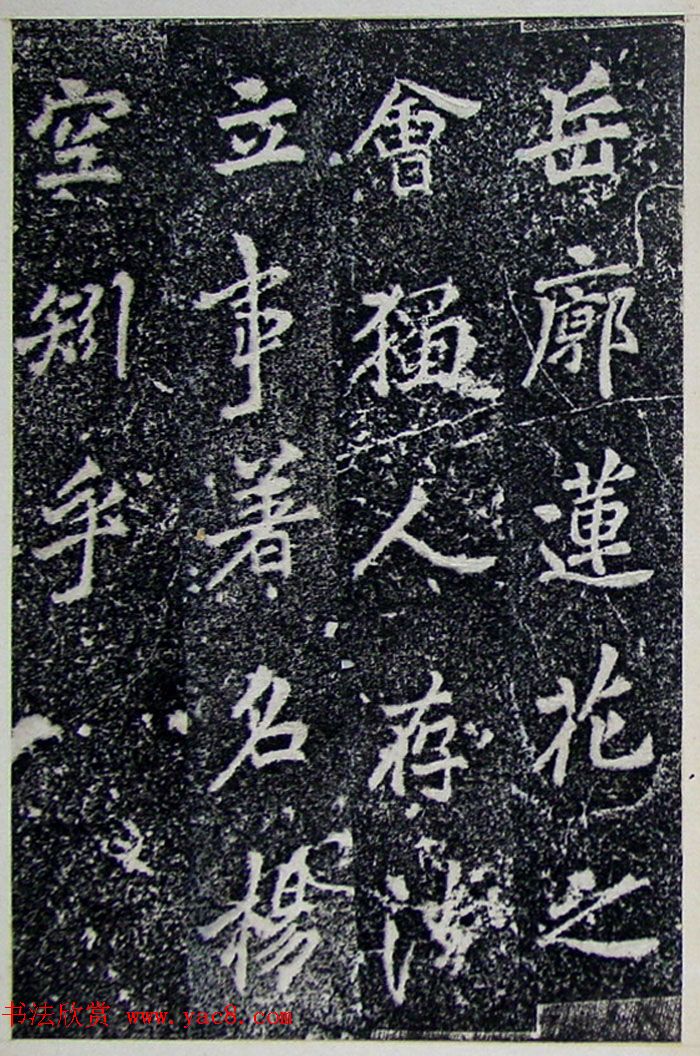 岳廓蓮花之
會猶人存法
立事著名楊
空矧乎
书法欣赏 www.yac8.com